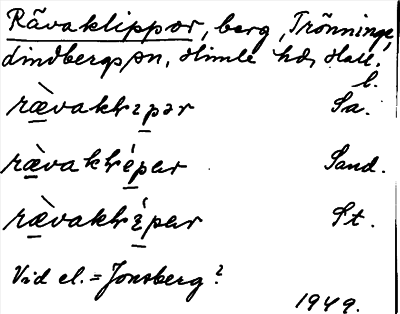 Råvaklippor, berg, Trönninge,
Lindbergs sn, Himle hd, Hall. l.
rævaklıpər Sa.
rævaklépar Sand.
rævaklépar St.
Vid el. = Jonsberg?
1949.